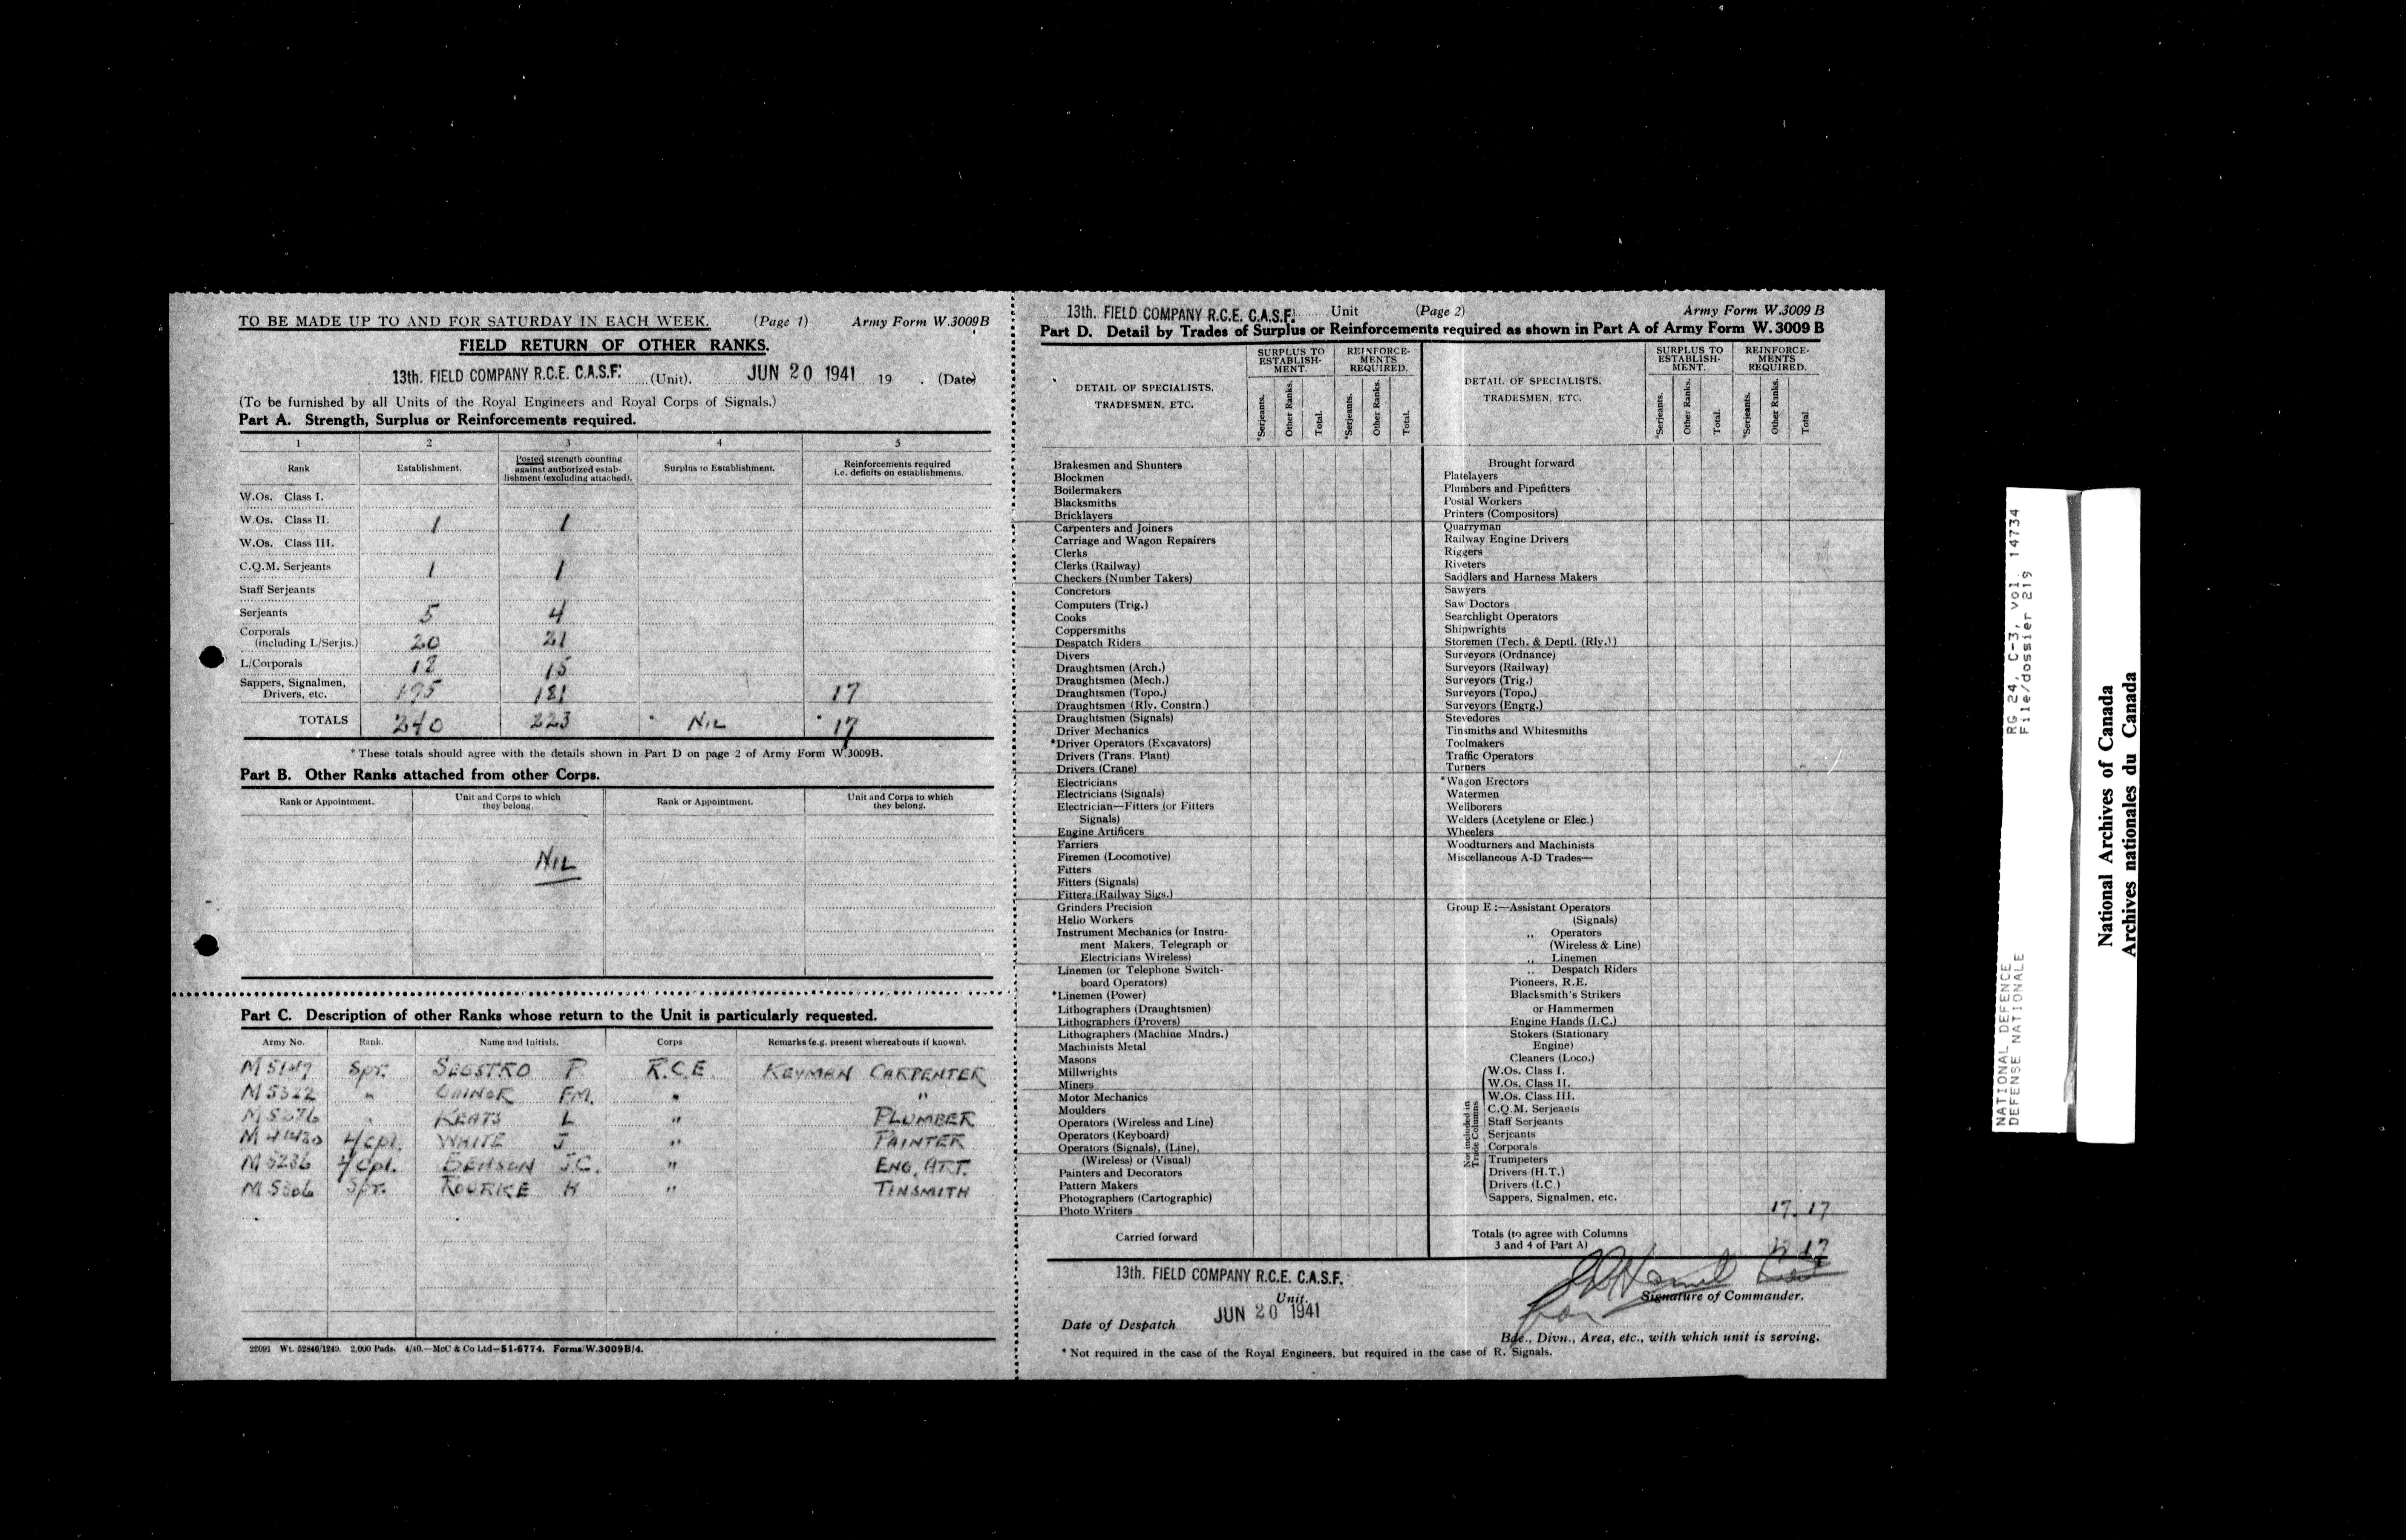 TO BE MADE UP TO AND FOR SATURDAY IN EACH WEEK. (Page 1) Army Form W.3009B
FIELD RETURN OF OTHER RANKS.
13th. FIELD COMPANY R.C.E. C.A.S.F. (Unit). JUN 20 1941 19 . (Date)
(To be furnished by all Units of the Royal Engineers and Royal Corps of Signals.)
Part A. Strength, Surplus or Reinforcements required.
1 2 3 4 5
Rank Establishment. Posted strength counting against authorized establishment (excluding attached). Surplus to Establishment. Reinforcements required i.e. deficits on establishments.
W.Os. Class I.
W.Os. Class II. 1 1
W.Os. Class III.
C.Q.M. Serjeants 1 1
Staff Serjeants
Serjeants 5 4
Corporals
(including L/Serjts.) 20 21
L/Corporals 18 15
Sappers, Signalmen,
Drivers, etc. 195 181 17
TOTALS 240 223 NIL 17
* These totals should agree with the details shown in Part D on page 2 of Army Form W.3009B.
Part B. Other Ranks attached from other Corps.
Rank or Appointment. Unit and Corps to which they belong. Rank or Appointment. Unit and Corps to which they belong.
NIL
Part C. Description of other Ranks whose return to the Unit is particularly requested.
Army No. Rank. Name and Initials. Corps Remarks (e.g. present whereabouts if known).
Spr. P. R.C.E. KEYMAN CARPENTER
M 5322 " F.M. " "
" KEATS L " PLUMBER
L/Cpl. WHITE J " PAINTER
M 5236 L/Cpl. BENSON J.C. " ENG. ART.
M 5306 Spr. ROURKE H " TINSMITH
22091 Wt. 52846/1249. 2,000 Pads. 4/40.—McC & Co Ltd—51-6774. Forms/W.3009B/4.
13th. FIELD COMPANY R.C.E. C.A.S.F. Unit (Page 2) Army Form W.3009 B
Part D. Detail by Trades of Surplus or Reinforcements required as shown in Part A of Army Form W. 3009 B
DETAIL OF SPECIALISTS, TRADESMEN, ETC. SURPLUS TO ESTABLISHMENT. REINFORCEMENTS REQUIRED.
*Serjeants. Other Ranks. Total. *Serjeants. Other Ranks. Total.
Brakesmen and Shunters
Blockmen
Boilermakers
Blacksmiths
Bricklayers
Carpenters and Joiners
Carriage and Wagon Repairers
Clerks
Clerks (Railway)
Checkers (Number Takers)
Concretors
Computers (Trig.)
Cooks
Coppersmiths
Despatch Riders
Divers
Draughtsmen (Arch.)
Draughtsmen (Mech.)
Draughtsmen (Topo.)
Draughtsmen (Rly. Constrn.)
Draughtsmen (Signals)
Driver Mechanics
*Driver Operators (Excavators)
Drivers (Trans. Plant)
Drivers (Crane)
Electricians
Electricians (Signals)
Electrician—Fitters (or Fitters
Signals)
Engine Artificers
Farriers
Firemen (Locomotive)
Fitters
Fitters (Signals)
Fitters (Railway Sigs.)
Grinders Precision
Helio Workers
Instrument Mechanics (or Instru-
ment Makers, Telegraph or
Electricians Wireless)
Linemen (or Telephone Switch-
board Operators)
*Linemen (Power)
Lithographers (Draughtsmen)
Lithographers (Provers)
Lithographers (Machine Mndrs.)
Machinists Metal
Masons
Millwrights
Miners
Motor Mechanics
Moulders
Operators (Wireless and Line)
Operators (Keyboard)
Operators (Signals), (Line),
(Wireless) or (Visual)
Painters and Decorators
Pattern Makers
Photographers (Cartographic)
Photo Writers
Carried forward
DETAIL OF SPECIALISTS, TRADESMEN, ETC. SURPLUS TO ESTABLISHMENT. REINFORCEMENTS REQUIRED.
*Serjeants. Other Ranks. Total. *Serjeants. Other Ranks. Total.
Brought forward
Platelayers
Plumbers and Pipefitters
Postal Workers
Printers (Compositors)
Quarryman
Railway Engine Drivers
Riggers
Riveters
Saddlers and Harness Makers
Sawyers
Saw Doctors
Searchlight Operators
Shipwrights
Storemen (Tech. & Deptl. (Rly.))
Surveyors (Ordnance)
Surveyors (Railway)
Surveyors (Trig.)
Surveyors (Topo.)
Surveyors (Engrg.)
Stevedores
Tinsmiths and Whitesmiths
Toolmakers
Traffic Operators
Turners
*Wagon Erectors
Watermen
Wellborers
Welders (Acetylene or Elec.)
Wheelers
Woodturners and Machinists
Miscellaneous A-D Trades—
Group E :—Assistant Operators
(Signals)
,, Operators
(Wireless & Line)
,, Linemen
,, Despatch Riders
Pioneers, R.E.
Blacksmith's Strikers
or Hammermen
Engine Hands (I.C.)
Stokers (Stationary
Engine)
Cleaners (Loco.)
Not included in Trade Columns
W.Os. Class I.
W.Os. Class II.
W.Os. Class III.
C.Q.M. Serjeants
Staff Serjeants
Serjeants
Corporals
Trumpeters
Drivers (H.T.)
Drivers (I.C.)
Sappers, Signalmen, etc. 17. 17
Totals (to agree with Columns
3 and 4 of Part A) 17 17
13th. FIELD COMPANY R.C.E. C.A.S.F.
Unit.
for
Signature of Commander.
Date of Despatch JUN 20 1941
Bde., Divn., Area, etc., with which unit is serving.
* Not required in the case of the Royal Engineers, but required in the case of R. Signals.
NATIONAL DEFENCE RG 24, C-3, vol. 14734
DEFENSE NATIONALE File/dossier 219
National Archives of Canada
Archives nationales du Canada